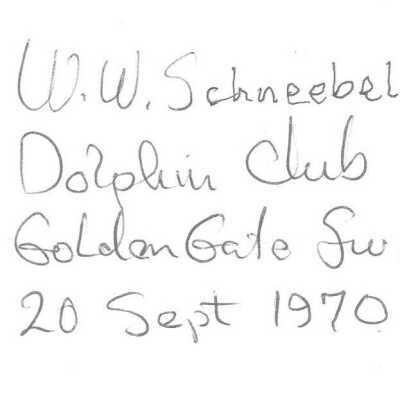 W. W. Schneebel
Dolphin Club
Golden Gate Sw
20 Sept 1970